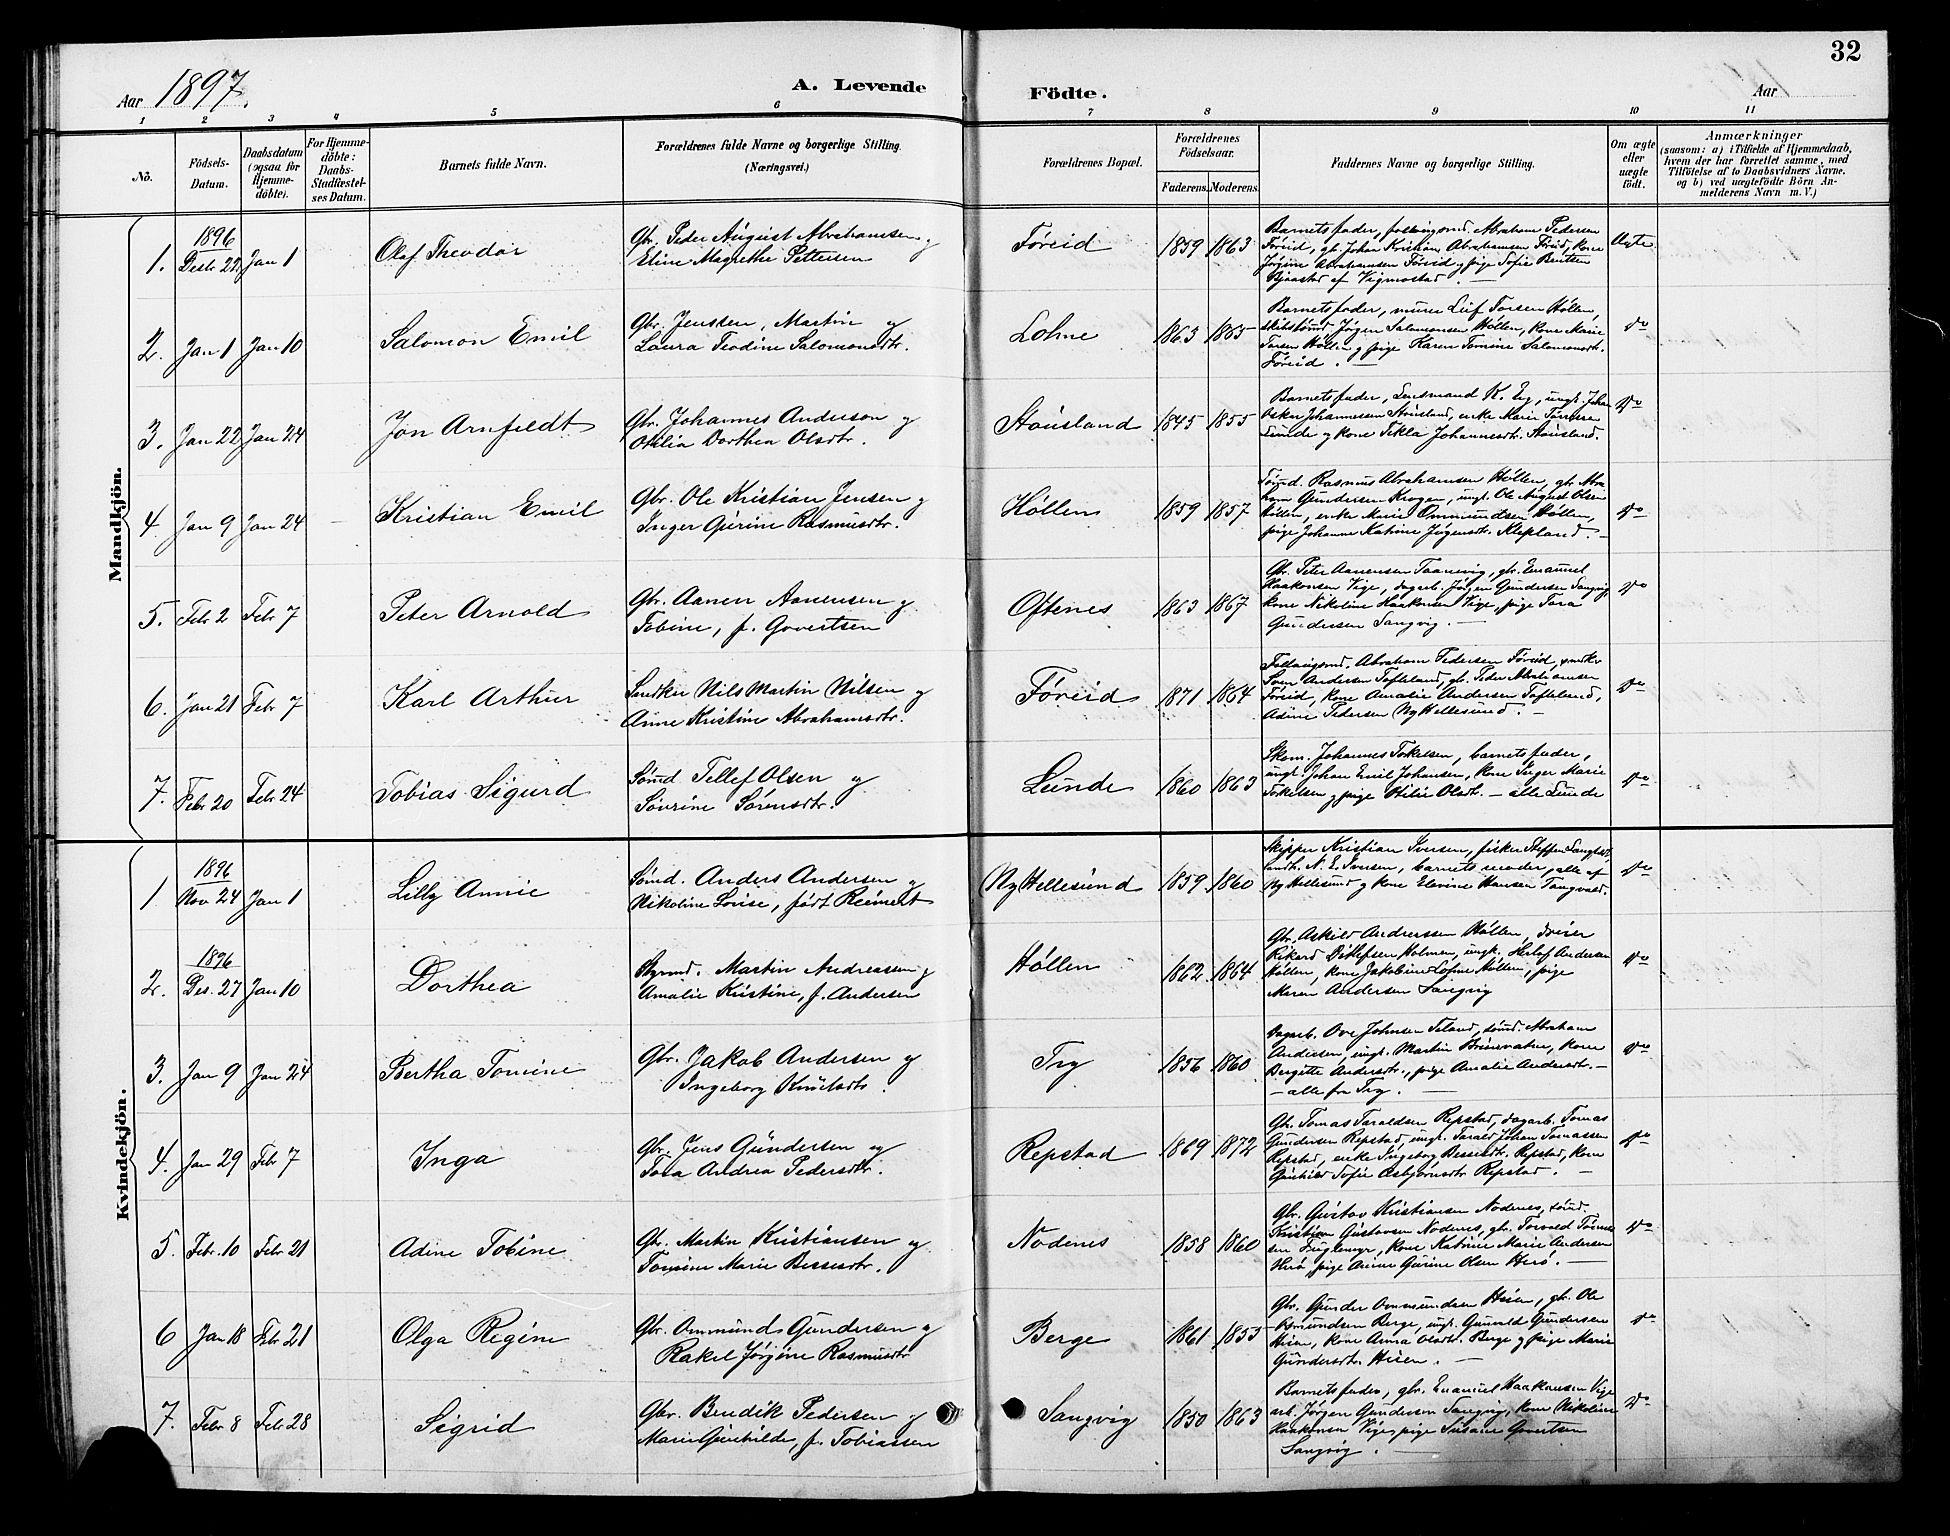 32
Aar 1897. A. Levende Födte. Aar
1 2 3 4 5 6 7 8 9 10 11
No. Födsels-Datum. Daabsdatum (ogsaa for Hjemme-döbte). For Hjemme-döbte: Daabs-Stadfæstel-ses Datum. Barnets fulde Navn. Forældrenes fulde Navne og borgerlige Stilling. (Næringsvei.) Forældrenes Bopæl. Forældrenes Födselsaar. Faderens. Moderens. Faddernes Navne og borgerlige Stilling. Om ægte eller uægte födt. Anmærkninger (saasom: a) i Tilfælde af Hjemmedaab, hvem der har forrettet samme, med Tilföielse af to Daabsvidners Navne. og b) ved uægtefödte Börn An-melderens Navn m. V.)
Mandkjön.
1. 1896 Desbr 22 Jan 1 Olaf Theodor Gbr. Peder August Abrahamsen og Eline Magrethe Pettersen Føreid 1859 1863 Barnets fader, follougsmd. Abraham Pedersen Føreid, gb. Johan Kristian Abrahamsen Føreid, kone Jørgine Abrahamsen Føreid og pige Sofie Bentsen Bjaastad af Vigmostad. — Ægte
2. Jan 1 Jan 10 Salomon Emil Gbr. Jenssen, Martin og Laura Teodine Salomonsdtr. Lohne 1863 1865 Barnets fader, murer Leif Torsen Høllen, Jørgen Salomonsen Høllen, kone Marie Torsen Høllen og pige Karen Tomine Salomonsdtr. Føreid. — do
3. Jan 22 Jan 24 Jon Arnfeldt Gbr. Johannes Anderson og Otilia Dorthea Olsdtr. Stausland 1845 1855 Barnets fader, Lensmand K. Eg, ungk. Johan Oskar Johannessen Stausland, enke Marie Lunde og kone Tekla Johannesdtr. Stausland. do
4. Jan 9 Jan 24 Kristian Emil Gbr. Ole Kristian Jensen og Inger Gurine Rasmusdtr. Høllen 1859 1857 Sømd. Rasmus Abrahamsen Høllen, gb. Abraham Gundersen Krogen, ungk. Ole August Olsen Høllen, enke Marie Ommundsen Høllen, pige Johanne Katrine Jørgensdtr. Klepland. — do
5. Febr 2 Febr 7 Peter Arnold Gbr. Aanen Aanensen og Tobine, f. Govertsen Oftenes 1863 1867 Gbr. Peter Aanensen Taanevig, gbr. Emanuel Haakonsen Vige, dagarb. Jørgen Gundersen Sangvig, kone Nikoline Haakonsen Vige, pige Tora Gundersen Sangvig. — do
6. Jan 21 Febr 7 Karl Arthur Snedker Nils Martin Nilsen og Anne Kristine Abrahamsdtr. Føreid 1871 1864 Follougsmd. Abraham Pedersen Føreid, snedker Andersen Tofteland, gb. Peder Abrahamsen Føreid, kone Amalie Andersen Tofteland, Adine Pedersen Ny Hellesund. — do
7. Febr 20 Febr 24 Tobias Sigurd Sømd Tellef Olsen og Sourine Sørensdtr. Lunde 1860 1863 Skom. Johannes Torkelsen, barnets fader, ungk. Johan Emil Johansen, kone Inger Marie Torkelsen og pige Otilie Olsdt. — alle Lunde do
Kvindekjön.
1. 1896 Nov 24 Jan 1 Lilly Annie Sømd. Anders Andersen og Nikoline Lovise, født Reimert Ny Hellesund 1859 1860 Skipper Kristian Iversen, fisker Steffen Langfeldt, N. E. Iversen, barnets moder, alle af Ny Hellesund og kone Elevine Hansen Tangvald. do
2. 1896 Des. 27 Jan 10 Dorthea Styrmd. Martin Andreassen og Amalie Kristine, f. Andersen Høllen 1862 1864 Gbr. Askild Andreassen Høllen, Rikard Ditlefsen Holmen, ungk. Herlof Andersen Høllen, kone Jakobine Lohne Høllen, pige Maren Andersen Sangvig do
3. Jan 9 Jan 24 Bertha Tomine Gbr. Jakob Andersen og Ingeborg Knudsdtr. Try 1856 1860 Dagarb. Ove Johnsen Teland, sømd. Abraham Andersen, ungk. Martin kone Bergitte Andersdtr., pige Amalie Andersdtr. — alle fra Try. do
4. Jan 29 Febr 7 Inga Gbr. Jens Gundersen og Tora Andrea Pedersdtr. Repstad 1869 1872 Gb. Tomas Taraldsen Repstad, dagarb. Tomas Gundersen Repstad, ungk. Tarald Johan Tomassen Repstad, enke Ingeborg Bessesdtr. Repstad, kone Gunhild Sofie Asbjørnsdtr Repstad. — do
5. Febr. 10 Febr 21 Adine Tobine Gb. Martin Kristiansen og Tomine Marie Bessesdtr. Nodenes 1858 1860 Gbr. Gustav Kristiansen Nodenes, sømd. Kristian Gustavsen Nodenes, gb. Torvald Fuglemyr, kone Katrine Marie Andersen Herø, pige Anne Gurine Olsen Herø. — do
6 Jan 18 Febr 21 Olga Regine Gbr. Ommund Gundersen og Rakel Jørgine Rasmusdtr Berge 1861 1855 Gbr. Gunder Ommundsen Heien, gb. Ole Berge, ungk. Gunvald Gundersen Heien, kone Anna Olsdtr. Berge og pige Marie Gundersdtr. Heien. — do
7. Febr 8 Febr 28 Sigrid Gbr. Bendik Pedersen og Marie Gunhilde, f. Tobiassen Sangvig 1850 1863 Barnets fader, gbr. Emanuel Haakonsen Vige arb. Jørgen Gundersen Sangvig, kone Nikoline Haakonsen Vige, pige Susane Govertsen Sangvig. — do